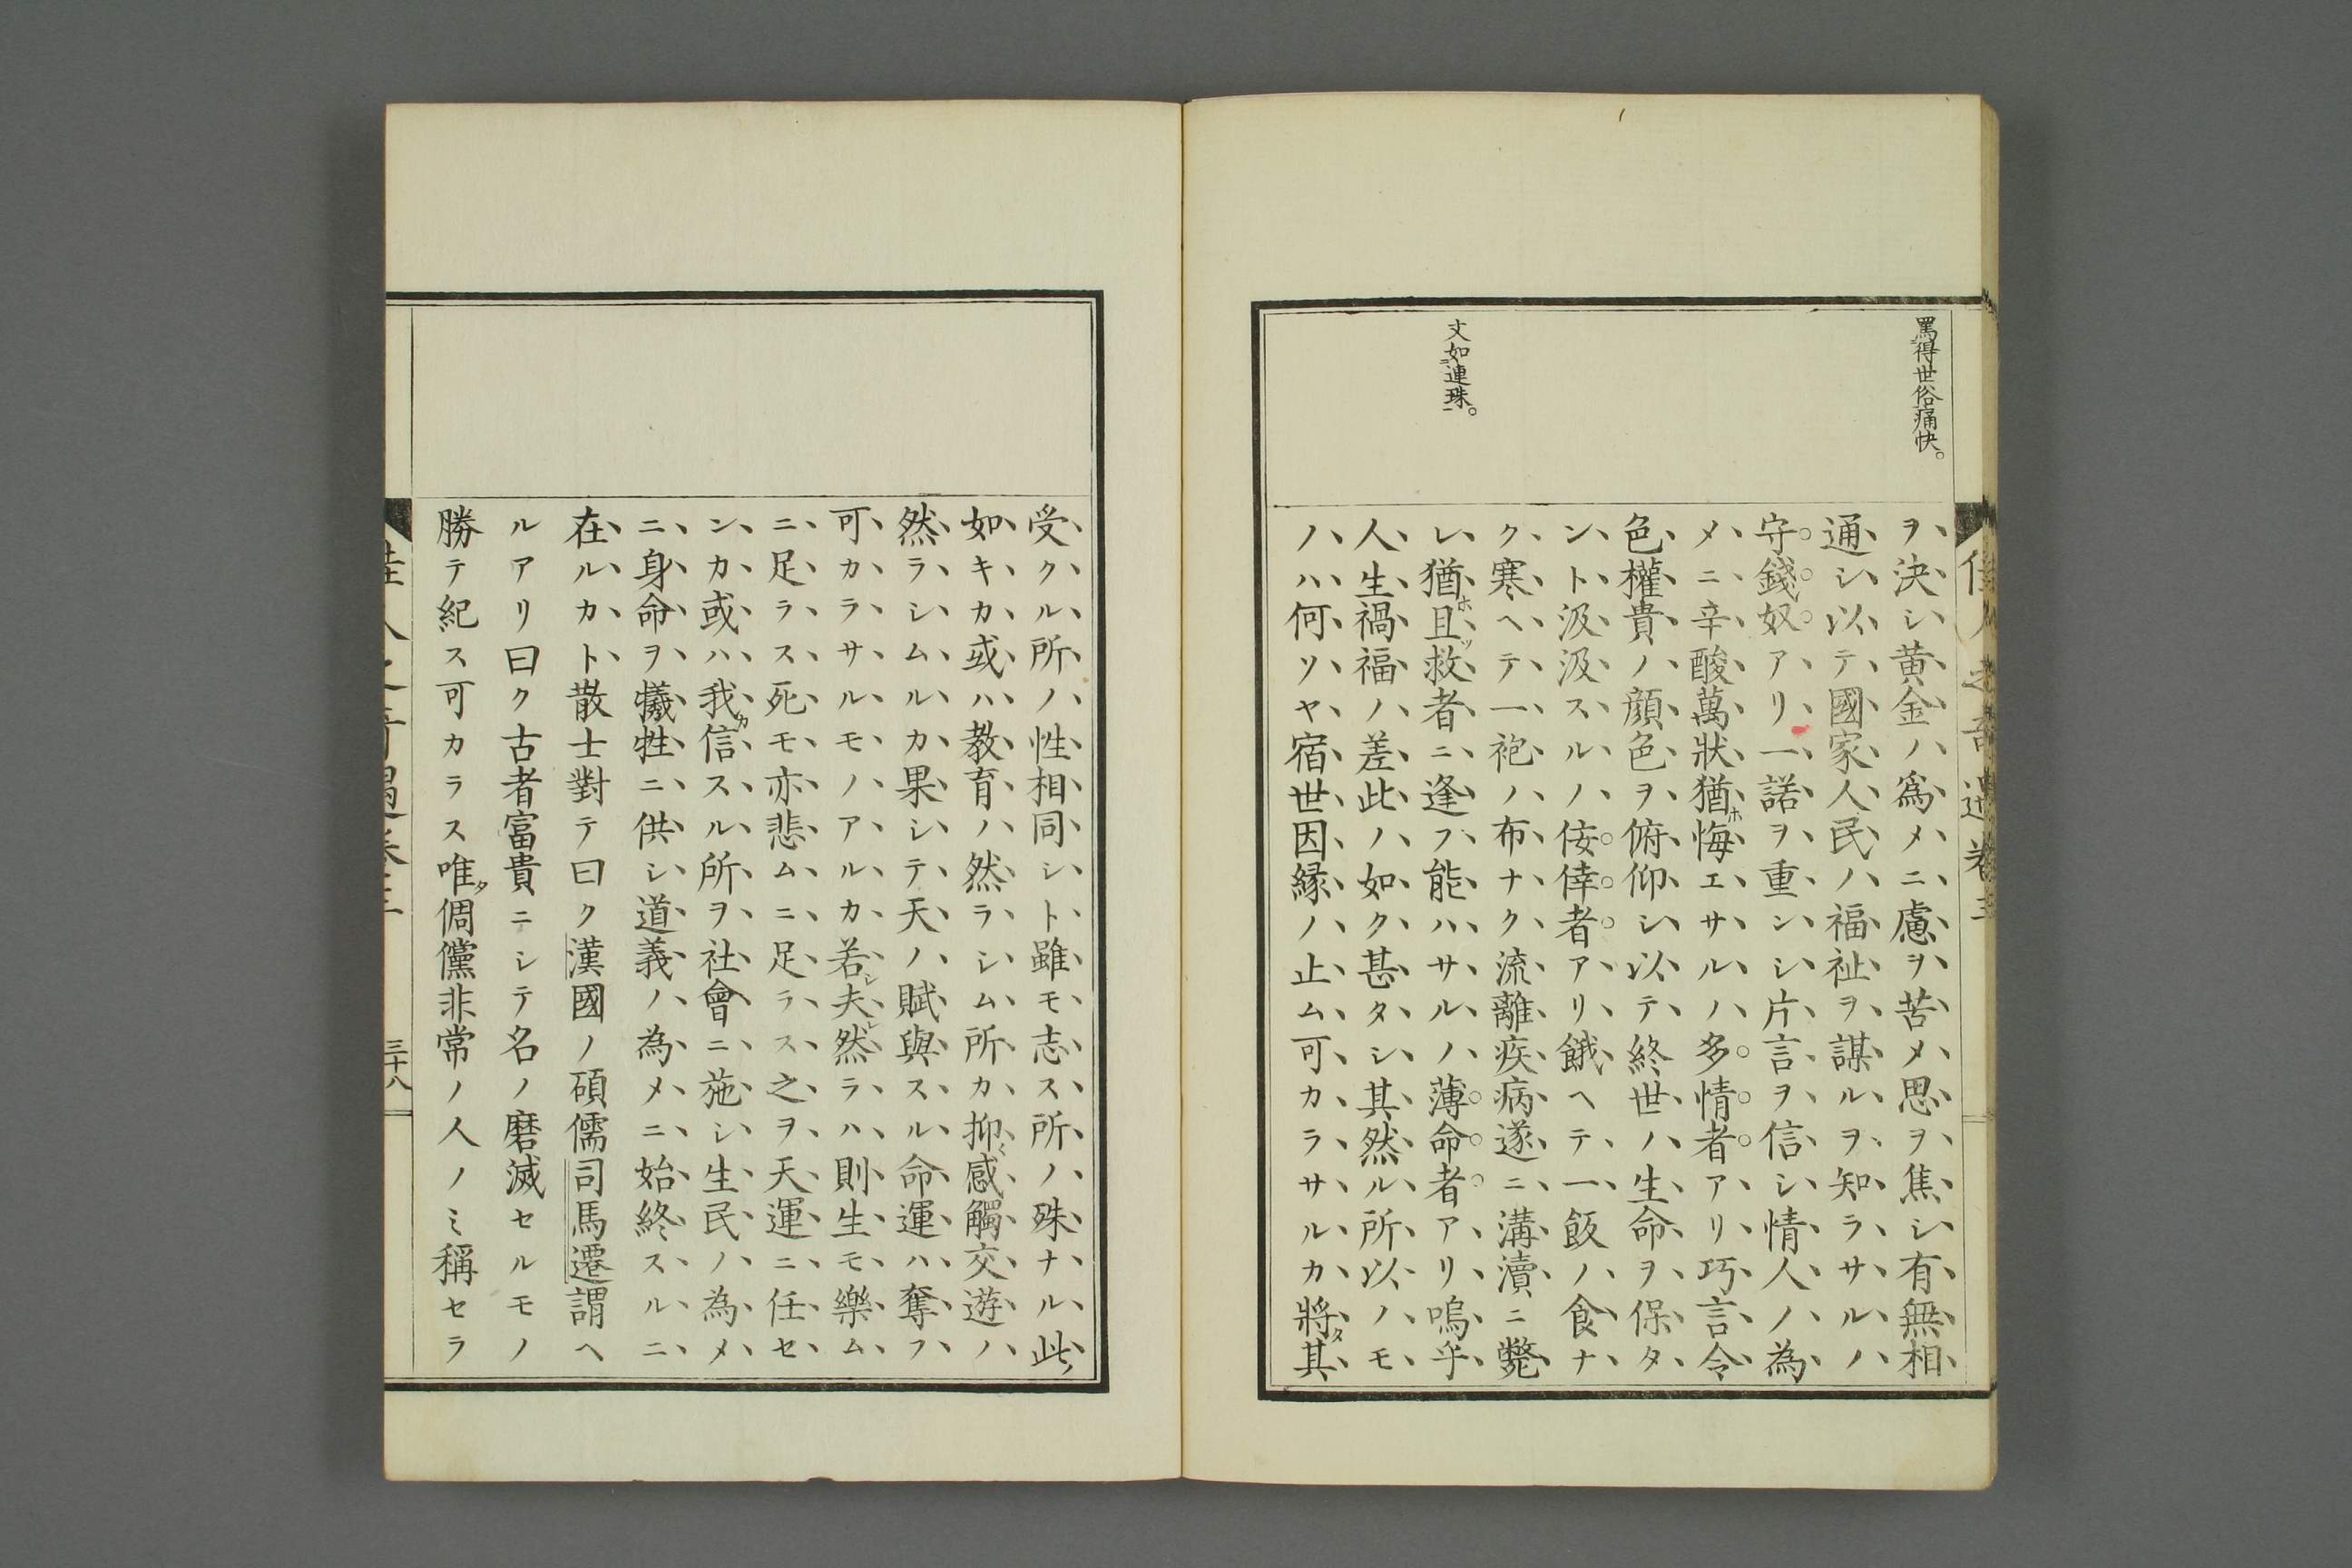 罵得世俗痛快。
ヲ決シ黄金ノ爲メニ慮ヲ苦メ思ヲ焦シ有無相
通シ以テ國家人民ノ福祉ヲ謀ルヲ知ラサルノ
守錢奴アリ一諾ヲ重ンシ片言ヲ信シ情人ノ為
メニ辛酸萬狀猶ホ悔エサルノ多情者アリ巧言令
色權貴ノ顔色ヲ俯仰シ以テ終世ノ生命ヲ保タ
ント汲汲スルノ佞倖者アリ餓ヘテ一飯ノ食ナ
ク寒ヘテ一袍ノ布ナク流離疾病遂ニ溝瀆ニ斃
文如連珠。
レ猶ホ且ツ救者ニ逢フ能ハサルノ薄命者アリ嗚乎
人生禍福ノ差此ノ如ク甚タシ其然ル所以ノモ
ノハ何ソヤ宿世因縁ノ止ム可カラサルカ將タ其
佳人之奇遇卷三
受クル所ノ性相同シト雖モ志ス所ノ殊ナル此ノ
如キカ或ハ教育ノ然ラシム所カ抑〻感觸交遊ノ
然ラシムルカ果シテ天ノ賦與スル命運ハ奪フ
可カラサルモノアルカ若シ夫レ然ラハ則生モ樂ム
ニ足ラス死モ亦悲ムニ足ラス之ヲ天運ニ任セ
ンカ或ハ我カ信スル所ヲ社會ニ施シ生民ノ為メ
ニ身命ヲ犠牲ニ供シ道義ノ為メニ始終スルニ
在ルカト散士對テ曰ク漢國ノ碩儒司馬遷謂ヘ
ルアリ曰ク古者富貴ニシテ名ノ磨滅セルモノ
勝テ紀ス可カラス唯タ倜儻非常ノ人ノミ稱セラ
佳人之奇遇卷三
三十八